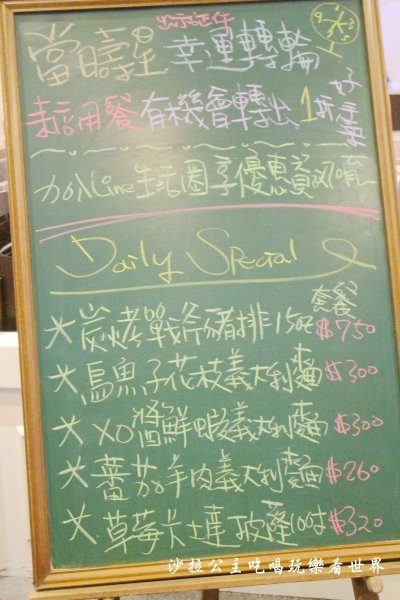 出示証件
當月壽星 幸運轉輪
來店用餐 有機會轉出1折好康
加入Line生活圈享優惠資訊唷
Daily Special
套餐
*炭烤戰斧豬排15oz $750
*烏魚子花枝義大利麵 $300
*XO醬鮮蝦義大利麵 $300
*蕃茄羊肉義大利麵 $260
*草莓卡士達披薩10吋 $320
沙拉公主吃喝玩樂看世界